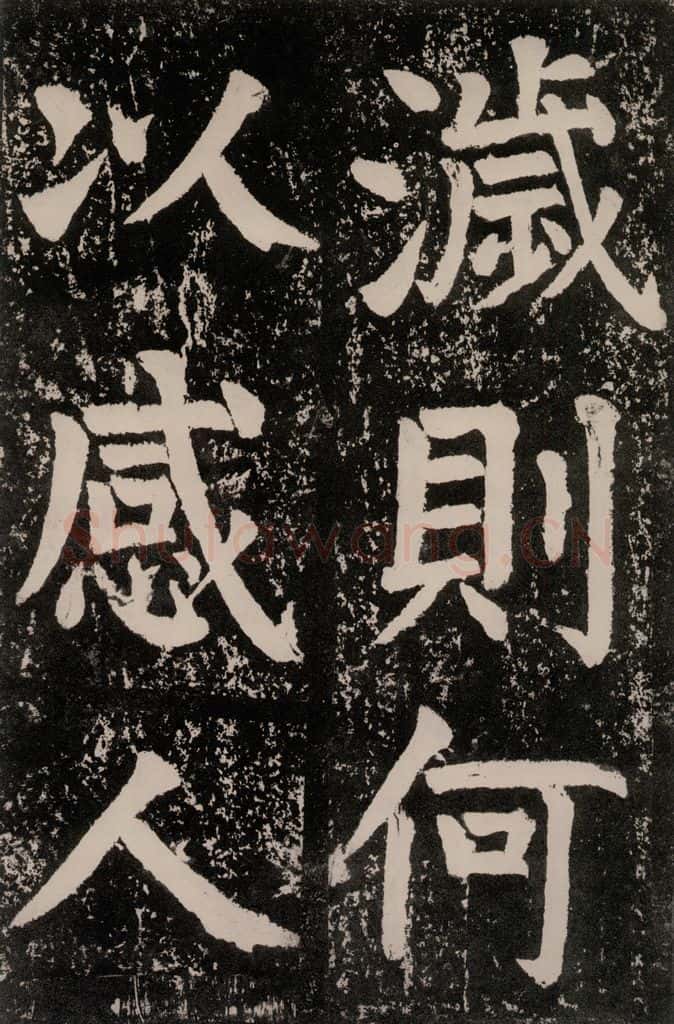 濊則何
以感人
Shufawang.CN